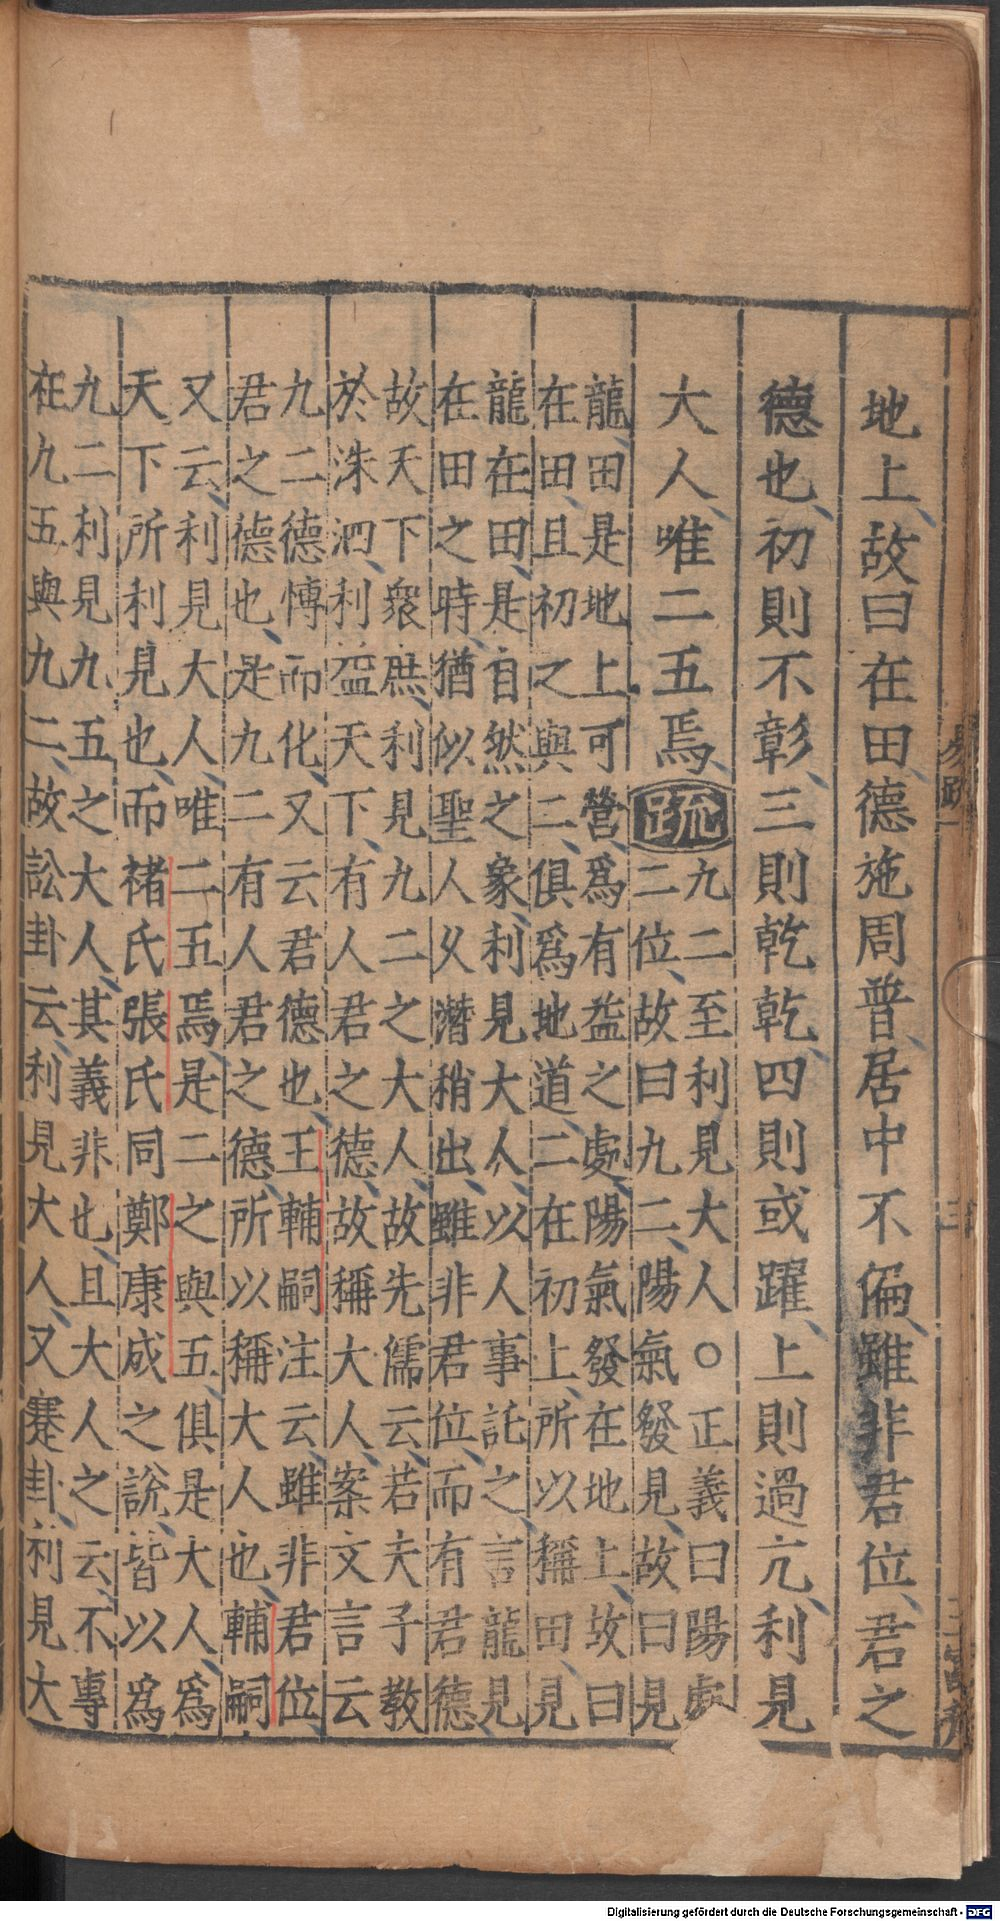 地上故曰在田德施周普居中不偏雖非君位君之
德也初則不彰三則乾乾四則或躍上則過亢利見
大人唯二五焉
疏
九二至利見大人○正義曰陽處
二位故曰九二陽氣發見故曰見
龍田是地上可營爲有益之處陽氣發在地上故曰
在田且初之與二俱爲地道二在初上所以稱田見
龍在田是自然之象利見大人以人事託之言龍見
在田之時猶似聖人乆潛稍出雖非君位而有君德
故天下衆庶利見九二之大人故先儒云若夫子教
於洙泗利益天下有人君之德故稱大人案文言云
九二德慱而化又云君德也王輔嗣注云雖非君位
君之德也是九二有人君之德所以稱大人也輔嗣
又云利見大人唯二五焉是二之與五俱是大人爲
天下所利見也而褚氏張氏同鄭康成之說皆以爲
九二利見九五之大人其義非也且大人之云不專
在九五與九二故訟卦云利見大人又蹇卦利見大
易疏一
Digitalisierung gefördert durch die Deutsche Forschungsgemeinschaft - DFG